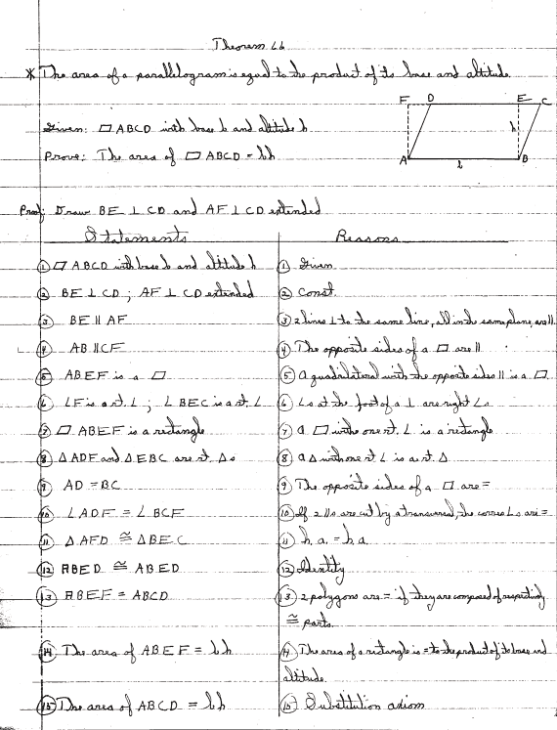 Theorem 66
* The area of a parallelogram is equal to the product of its base and altitude.
F D E C
h
A b B
Given: ▱ ABCD with base b and altitude h
Prove: The area of ▱ ABCD = bh
Proof: Draw BE ⊥ CD and AF ⊥ CD extended
Statements Reasons
① ▱ ABCD with base b and altitude h ① Given
② BE ⊥ CD ; AF ⊥ CD extended ② Const.
③ BE ∥ AF ③ 2 lines ⊥ to the same line, all in the same plane, are ∥
④ AB ∥ CF ④ The opposite sides of a ▱ are ∥
⑤ ABEF is a ▱ ⑤ A quadrilateral with the opposite sides ∥ is a ▱
⑥ ∠F is a rt. ∠ ; ∠BEC is a rt. ∠ ⑥ ∠s at the foot of a ⊥ are right ∠s
⑦ ▱ ABEF is a rectangle ⑦ a ▱ with one rt. ∠ is a rectangle
⑧ △ADF and △EBC are rt. △s ⑧ a △ with one rt ∠ is a rt. △
⑨ AD = BC ⑨ The opposite sides of a ▱ are =
⑩ ∠ADF = ∠BCF ⑩ If 2 ∥s are cut by a transversal, the corres ∠s are =
⑪ △AFD ≅ △BEC ⑪ h.a. = h.a.
⑫ ABED ≅ ABED ⑫ Identity
⑬ ABEF = ABCD ⑬ 2 polygons are = if they are composed of respecting
≅ parts.
⑭ The area of ABEF = bh ⑭ The area of a rectangle is = to the product of its base and
altitude.
⑮ The area of ABCD = bh ⑮ Substitution axiom